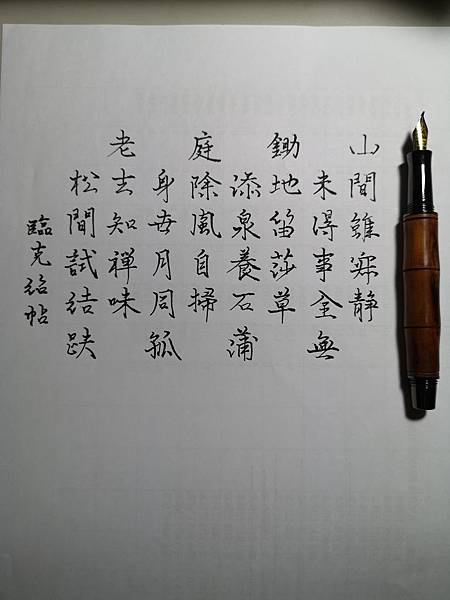 山間雖寂静
未得事全無
鋤地留莎草
添泉養石蒲
庭除風自掃
身世月同孤
老去知禪味
松間試結趺
臨克紹帖